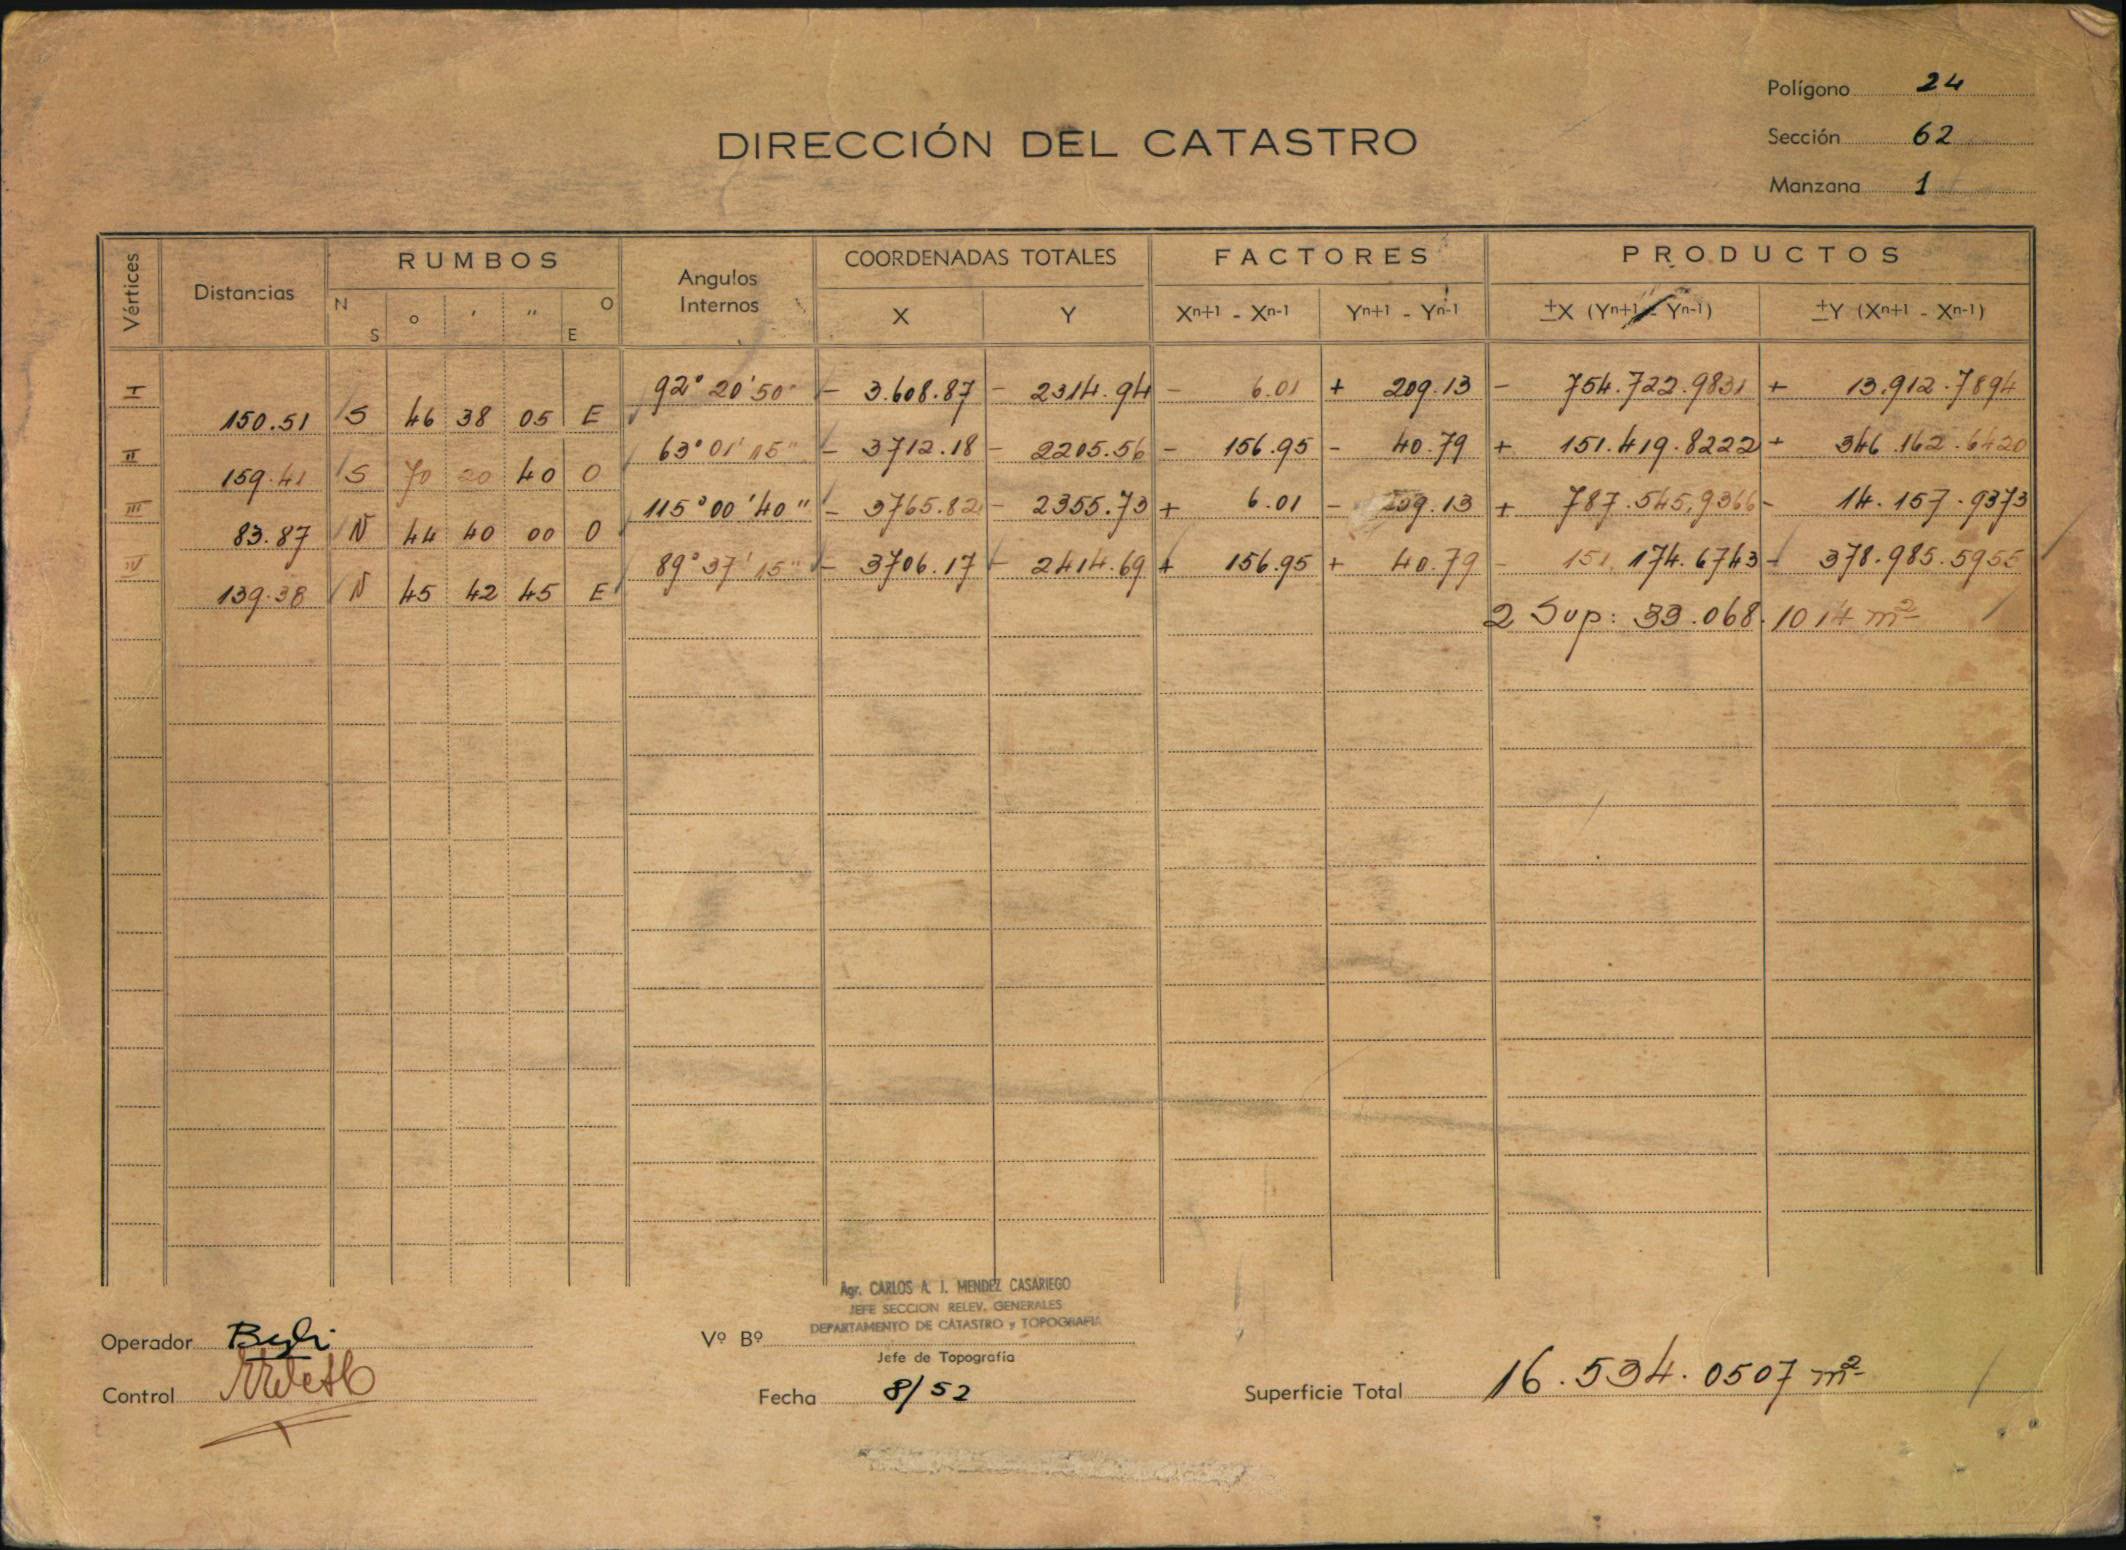 Polígono 24
DIRECCIÓN DEL CATASTRO
Sección 62
Manzana 1
Vértices Distancias RUMBOS Angulos Internos COORDENADAS TOTALES FACTORES PRODUCTOS
N S o ' " O E X Y Xn+1 - Xn-1 Yn+1 - Yn-1 ±X (Yn+1 - Yn-1) ±Y (Xn+1 - Xn-1)
I 92° 20' 50" - 3.608.87 - 2314.94 - 6.01 + 209.13 - 754.722.9831 + 13.912.7894
150.51 S 46 38 05 E
II 63° 01' 15" - 3712.18 - 2205.56 - 156.95 - 40.79 + 151.419.8222 + 346.162.6420
159.41 S 70 20 40 O
III 115° 00' 40" - 3765.82 - 2355.73 + 6.01 - 209.13 + 787.545,9366 - 14.157.9373
83.87 N 44 40 00 O
IV 89° 37' 15" - 3706.17 - 2414.69 + 156.95 + 40.79 - 151.174.6743 - 378.985.5955
139.38 N 45 42 45 E
2 Sup: 33.068.1014 m²
Agr. CARLOS A. J. MENDEZ CASARIEGO
JEFE SECCION RELEV. GENERALES
DEPARTAMENTO DE CATASTRO y TOPOGRAFIA
Operador Vº Bº
Jefe de Topografía
Control Fecha 8/52 Superficie Total 16.534.0507 m²